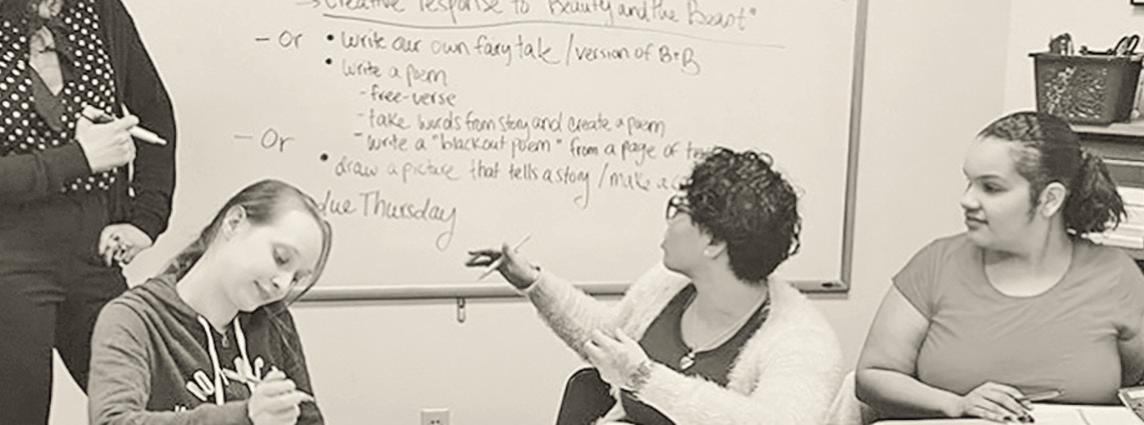 → Creative response to "Beauty and the Beast"
- Or • Write our own fairy tale / version of B+B
• Write a poem
- free-verse
- take words from story and create a poem
- Or - write a "blackout poem" from a page of
• draw a picture that tells a story / make a
due Thursday